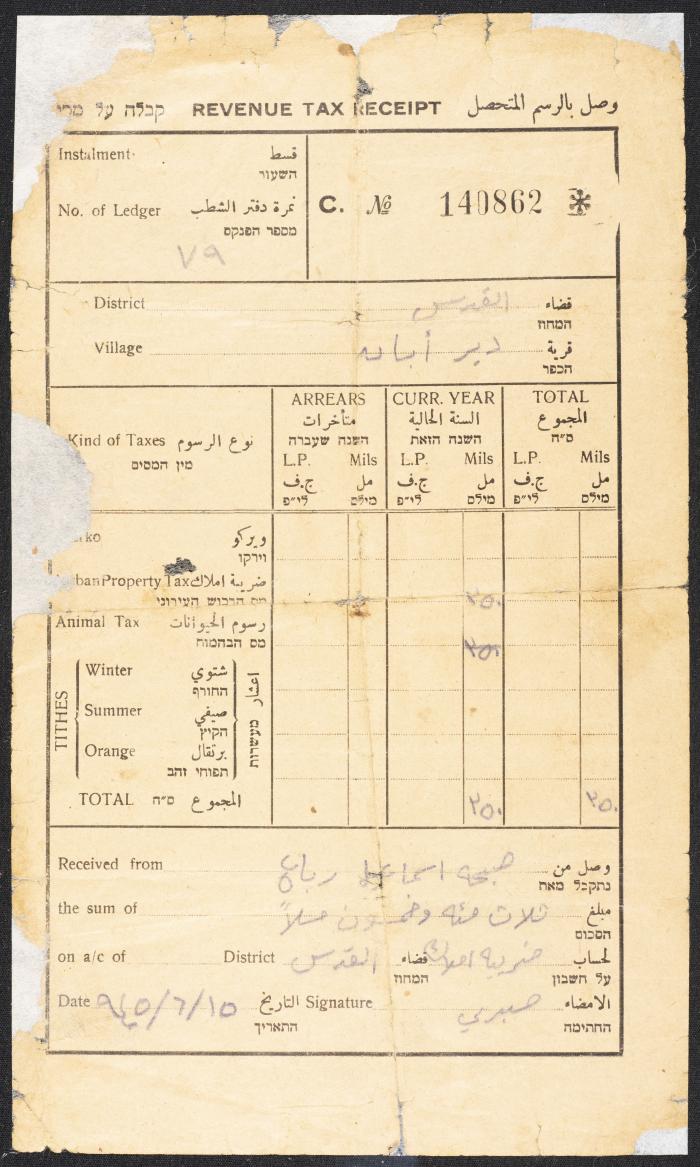 קבלה על REVENUE TAX RECEIPT وصل بالرسم المتحصل
Instalment قسط
השעור
No. of Ledger نمرة دفتر الشطب
מספר הפנקס
٧٩
C. № 140862
District القدس قضاء
המחוז
Village دير أبان قرية
הכפר
Kind of Taxes نوع الرسوم
מין המסים
ARREARS
متأخرات
השנה שעברה
L.P. Mils
ج.ف مل
לי״פ מילס
CURR. YEAR
السنة الحالية
השנה הזאת
L.P. Mils
ج.ف مل
לי״פ מילס
TOTAL
المجموع
ס״ה
L.P. Mils
ج.ف مل
לי״פ מילס
rko ويركو
וירקו
rban Property Tax ضريبة املاك
מס הרכוש העירוני
٣٥٠
Animal Tax رسوم الحيوانات
מס הבהמות
٣٥٠
TITHES اعشار מעשרות
Winter شتوي
החורף
Summer صيفي
הקיץ
Orange برتقال
תפוחי זהב
TOTAL ס״ה المجموع ٣٥٠ ٣٥٠
Received from صبحه اسماعيل وصل من
נתקבל מאת
the sum of ثلاث مئه وخمسون ملاً مبلغ
הסכום
on a/c of ضريبة املاك لحساب
על חשבון
District القدس قضاء
המחוז
Date ٩٤٥/٦/١٥ التاريخ
התאריך
Signature صبري الامضاء
החתימה